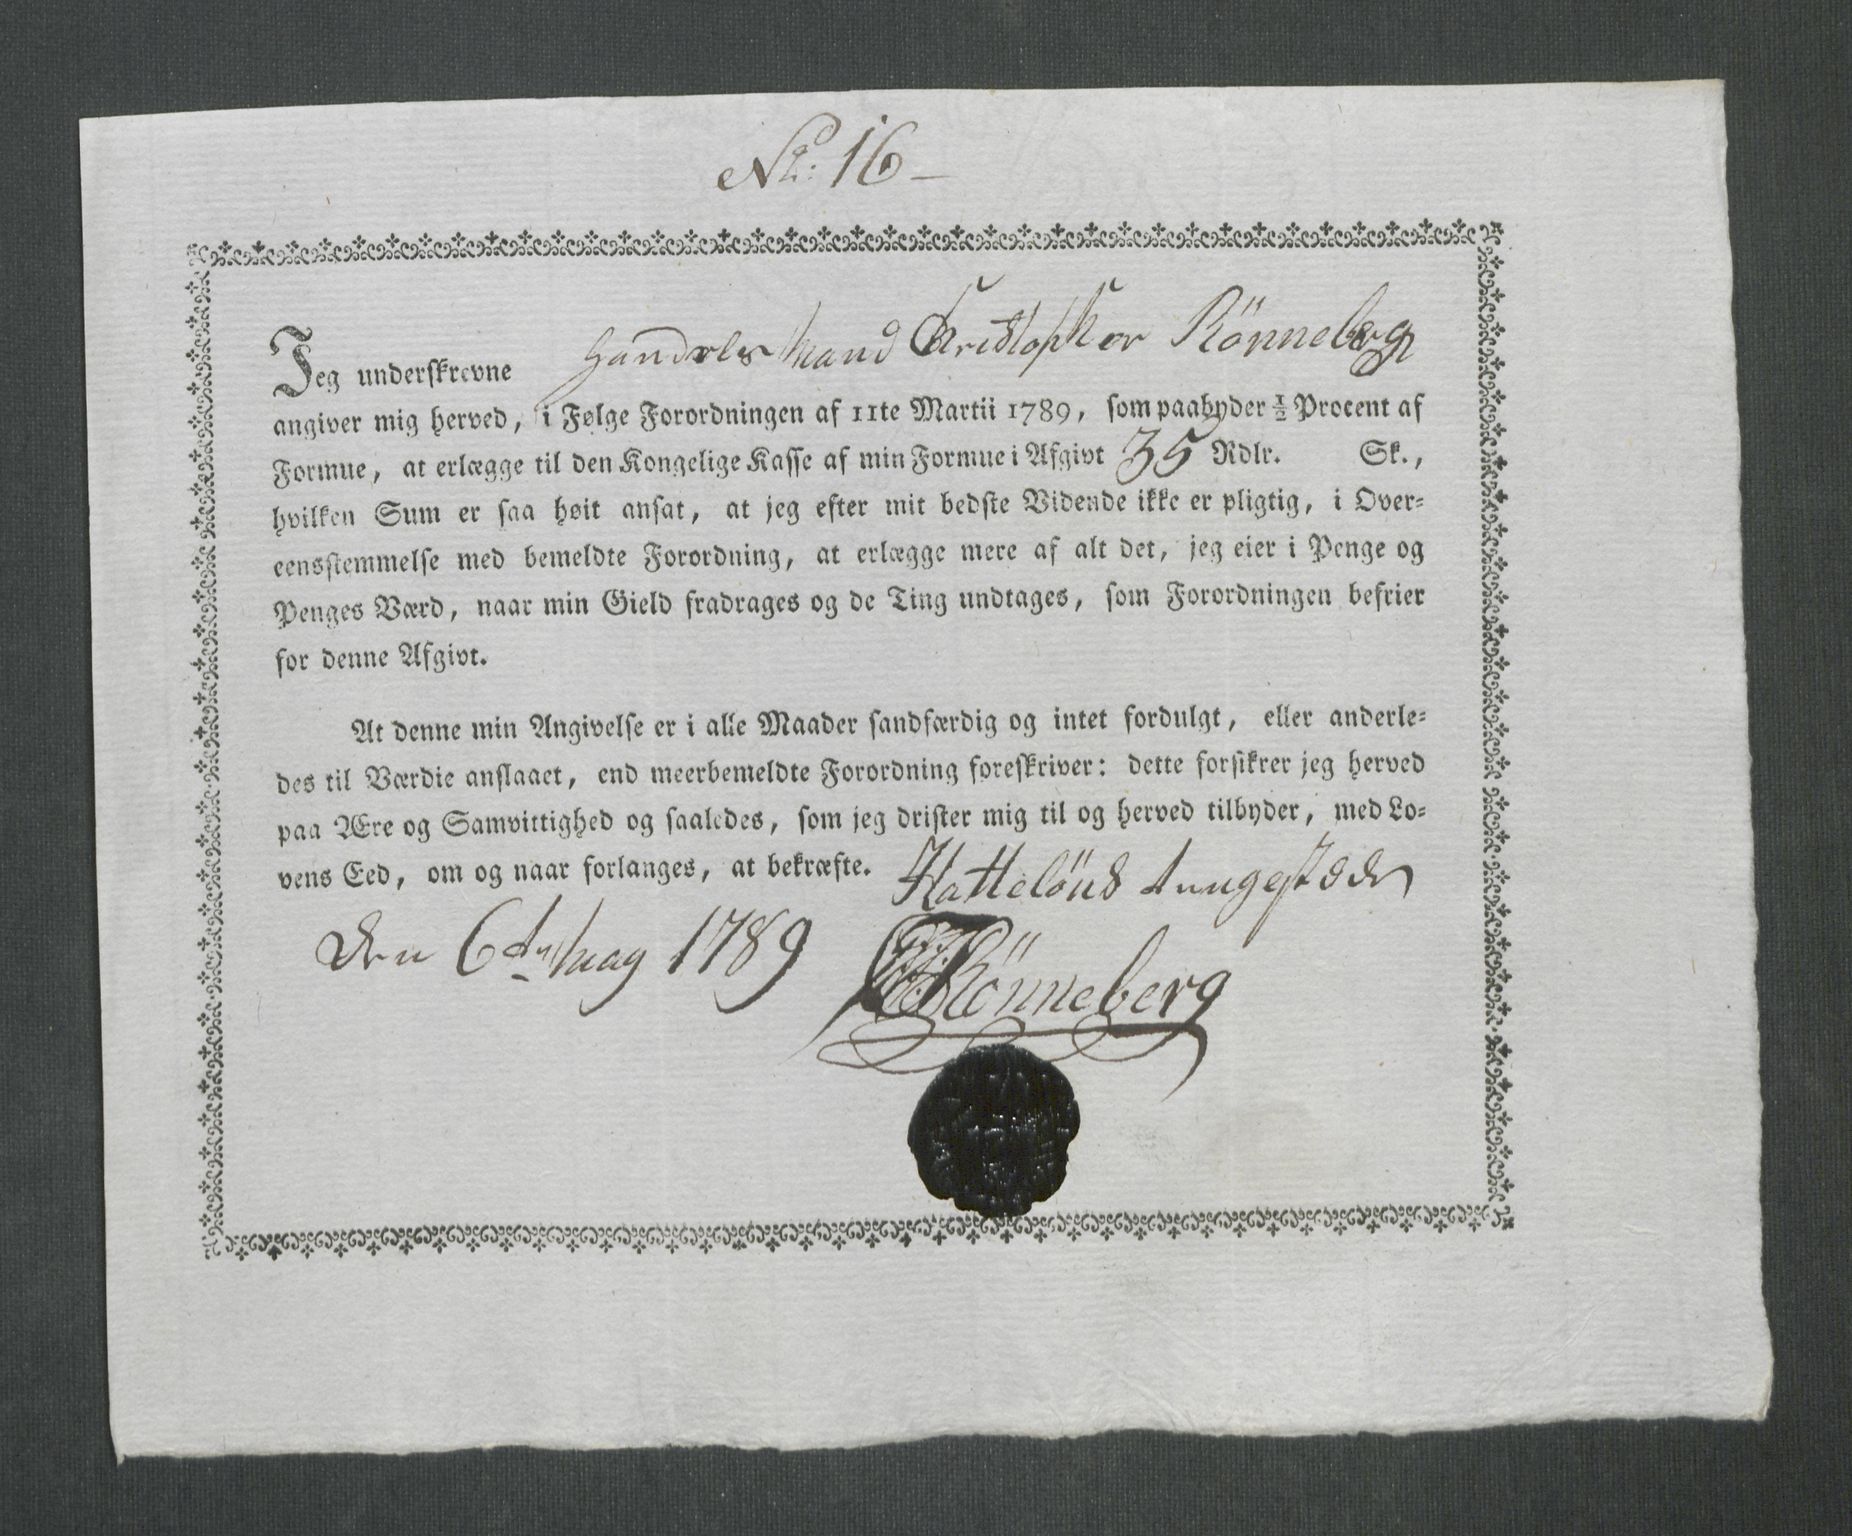 No: 16 –
Jeg underskrevne Handels Mand Cristopher Rönneberg
angiver mig herved, i Følge Forordningen af 11te Martii 1789, som paabyder ½ Procent af
Formue, at erlægge til den Kongelige Kasse af min Formue i Afgivt 35 Rdlr. Sk.,
hvilken Sum er saa høit ansat, at jeg efter mit bedste Vidende ikke er pligtig, i Over-
eensstemmelse med bemeldte Forordning, at erlægge mere af alt det, jeg eier i Penge og
Penges Værd, naar min Gield fradrages og de Ting undtages, som Forordningen befrier
for denne Afgivt.
At denne min Angivelse er i alle Maader sandfærdig og intet fordulgt, eller anderle-
des til Værdie anslaaet, end meerbemeldte Forordning foreskriver: dette forsikrer jeg herved
paa Ære og Samvittighed og saaledes, som jeg drister mig til og herved tilbyder, med Lo-
vens Eed, om og naar forlanges, at bekræfte. Hatteløns
Den 6te May 1789
Rönneberg